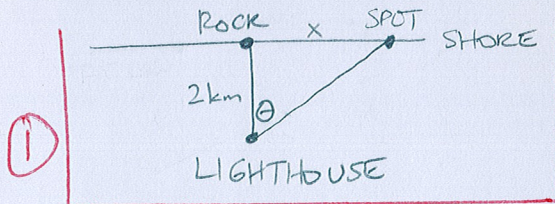 ROCK x SPOT
SHORE
2km
θ
LIGHTHOUSE
1